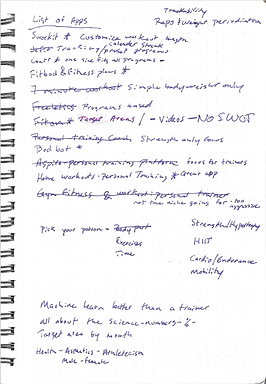 Trackability
List of Apps
Reps & weight periodization
Sworkit * Customize workout length
Calendar streak
Tracking / preset programs
one size fits all Programs -
Fitbod & Fitness plans *
7 minute workout Simple bodyweight only
Freeletics Programs named
Fiton * Target Areas / - Videos - NO SWOT
Personal Training Coach Strength only focus
Bodbot *
Aspire personal training platform focus for trainers
Home workouts - Personal Training * Great app
Gym Fitness & workout: personal trainer
not the niche going for - too aggressive
Pick your poison - Body part
Exercises
Time
Strength/Hypertrophy
HIIT
Cardio/Endurance
Mobility
Machine learn better than a trainer
all about the science - numbers - % -
Target area by month
Health - Aesthetics - Athleticism
Male - Female